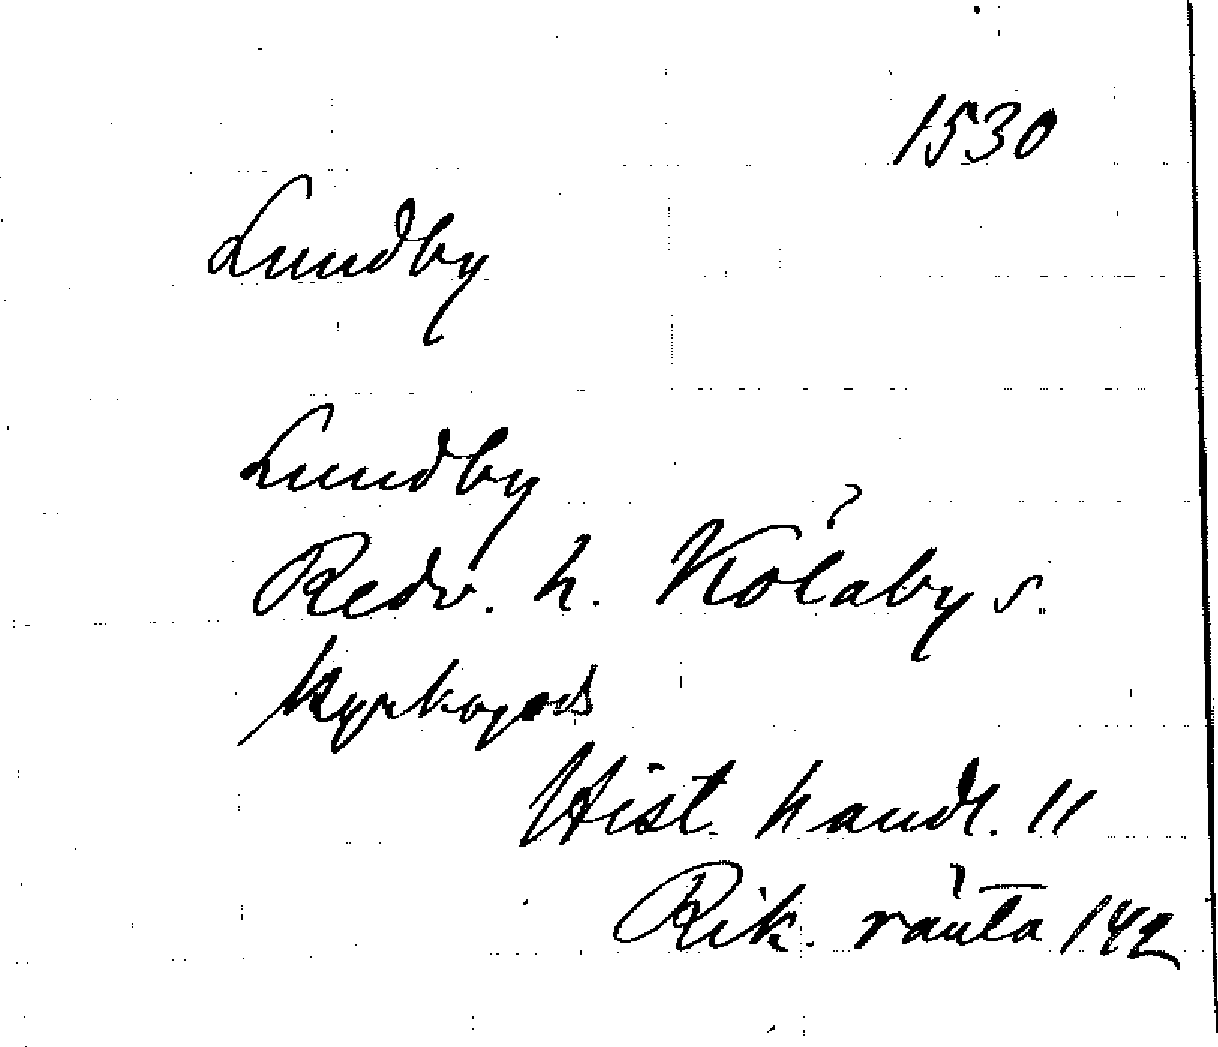 1530
Lundby
Lundby
Redv. h. Kölaby s.
kyrkogods
Hist. handl. 11
Rik. ränta 142